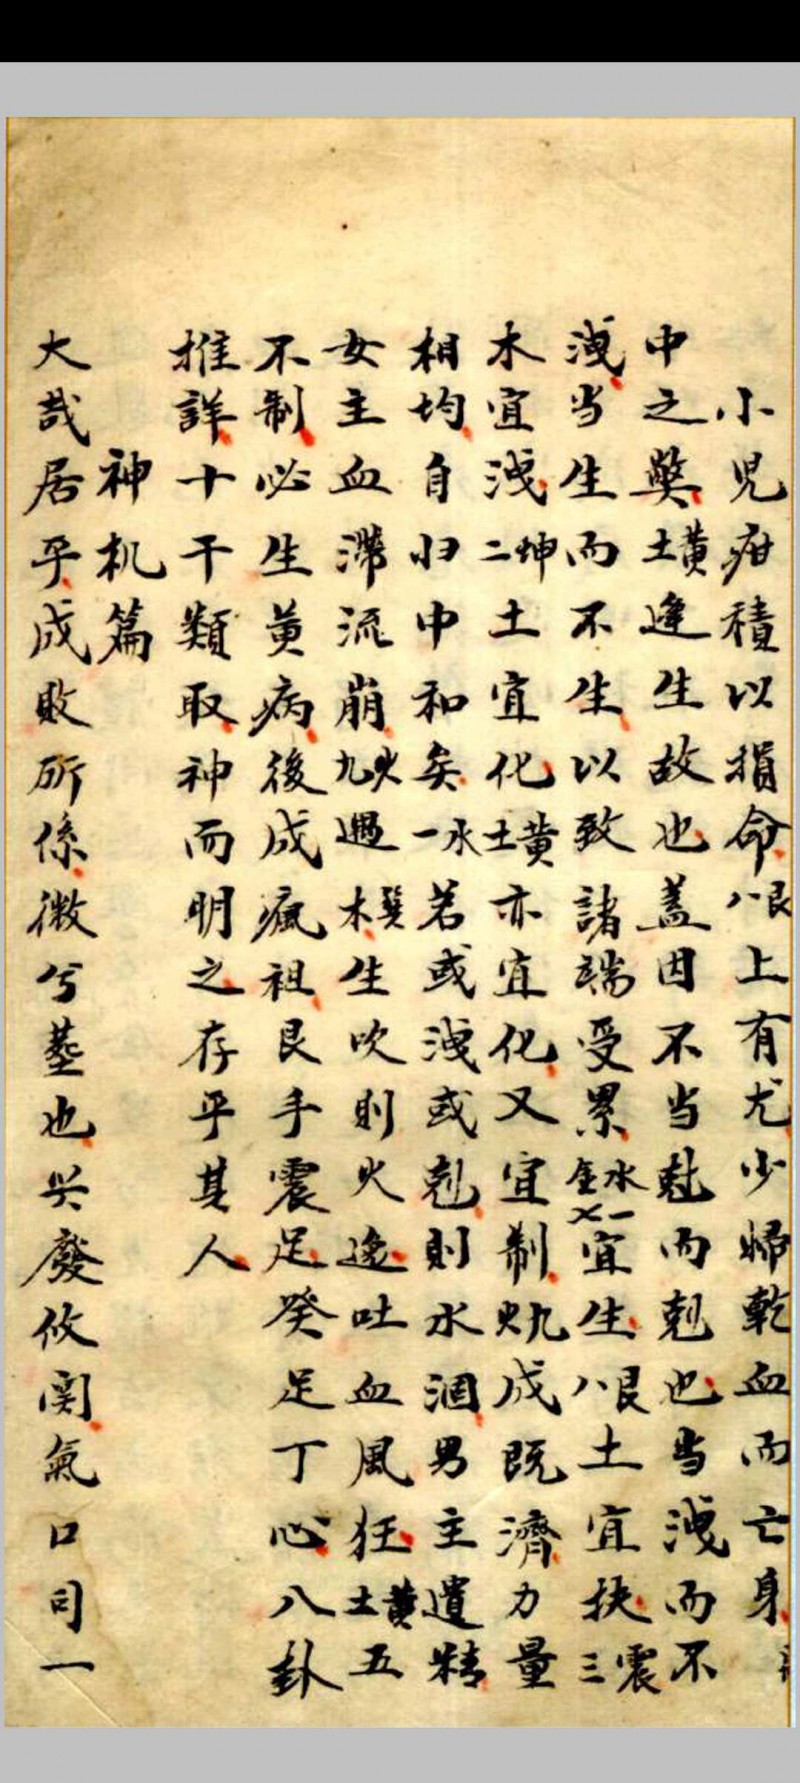 小児疳積以損命八艮上有尤少婦乾血而亡身
中之獘土黄逢生故也蓋因不当尅而剋也当洩而不
洩当生而不生以致諸端受累金水㐅一宜生八艮土宜扶三震
木宜洩二坤土宜化土黄亦宜化又宜制火九成既濟力量
相均自归中和矣一水若或洩或剋則水涸男主遺精
女主血滞流崩九火遇木巽生吹則火逸吐血風狂土黄五
不制必生黄病後成瘋祖艮手震足癸足丁心八卦
推詳十干類取神而明之存乎其人
神机篇
大哉居乎成敗所係微兮塟也兴廢攸関氣口司一